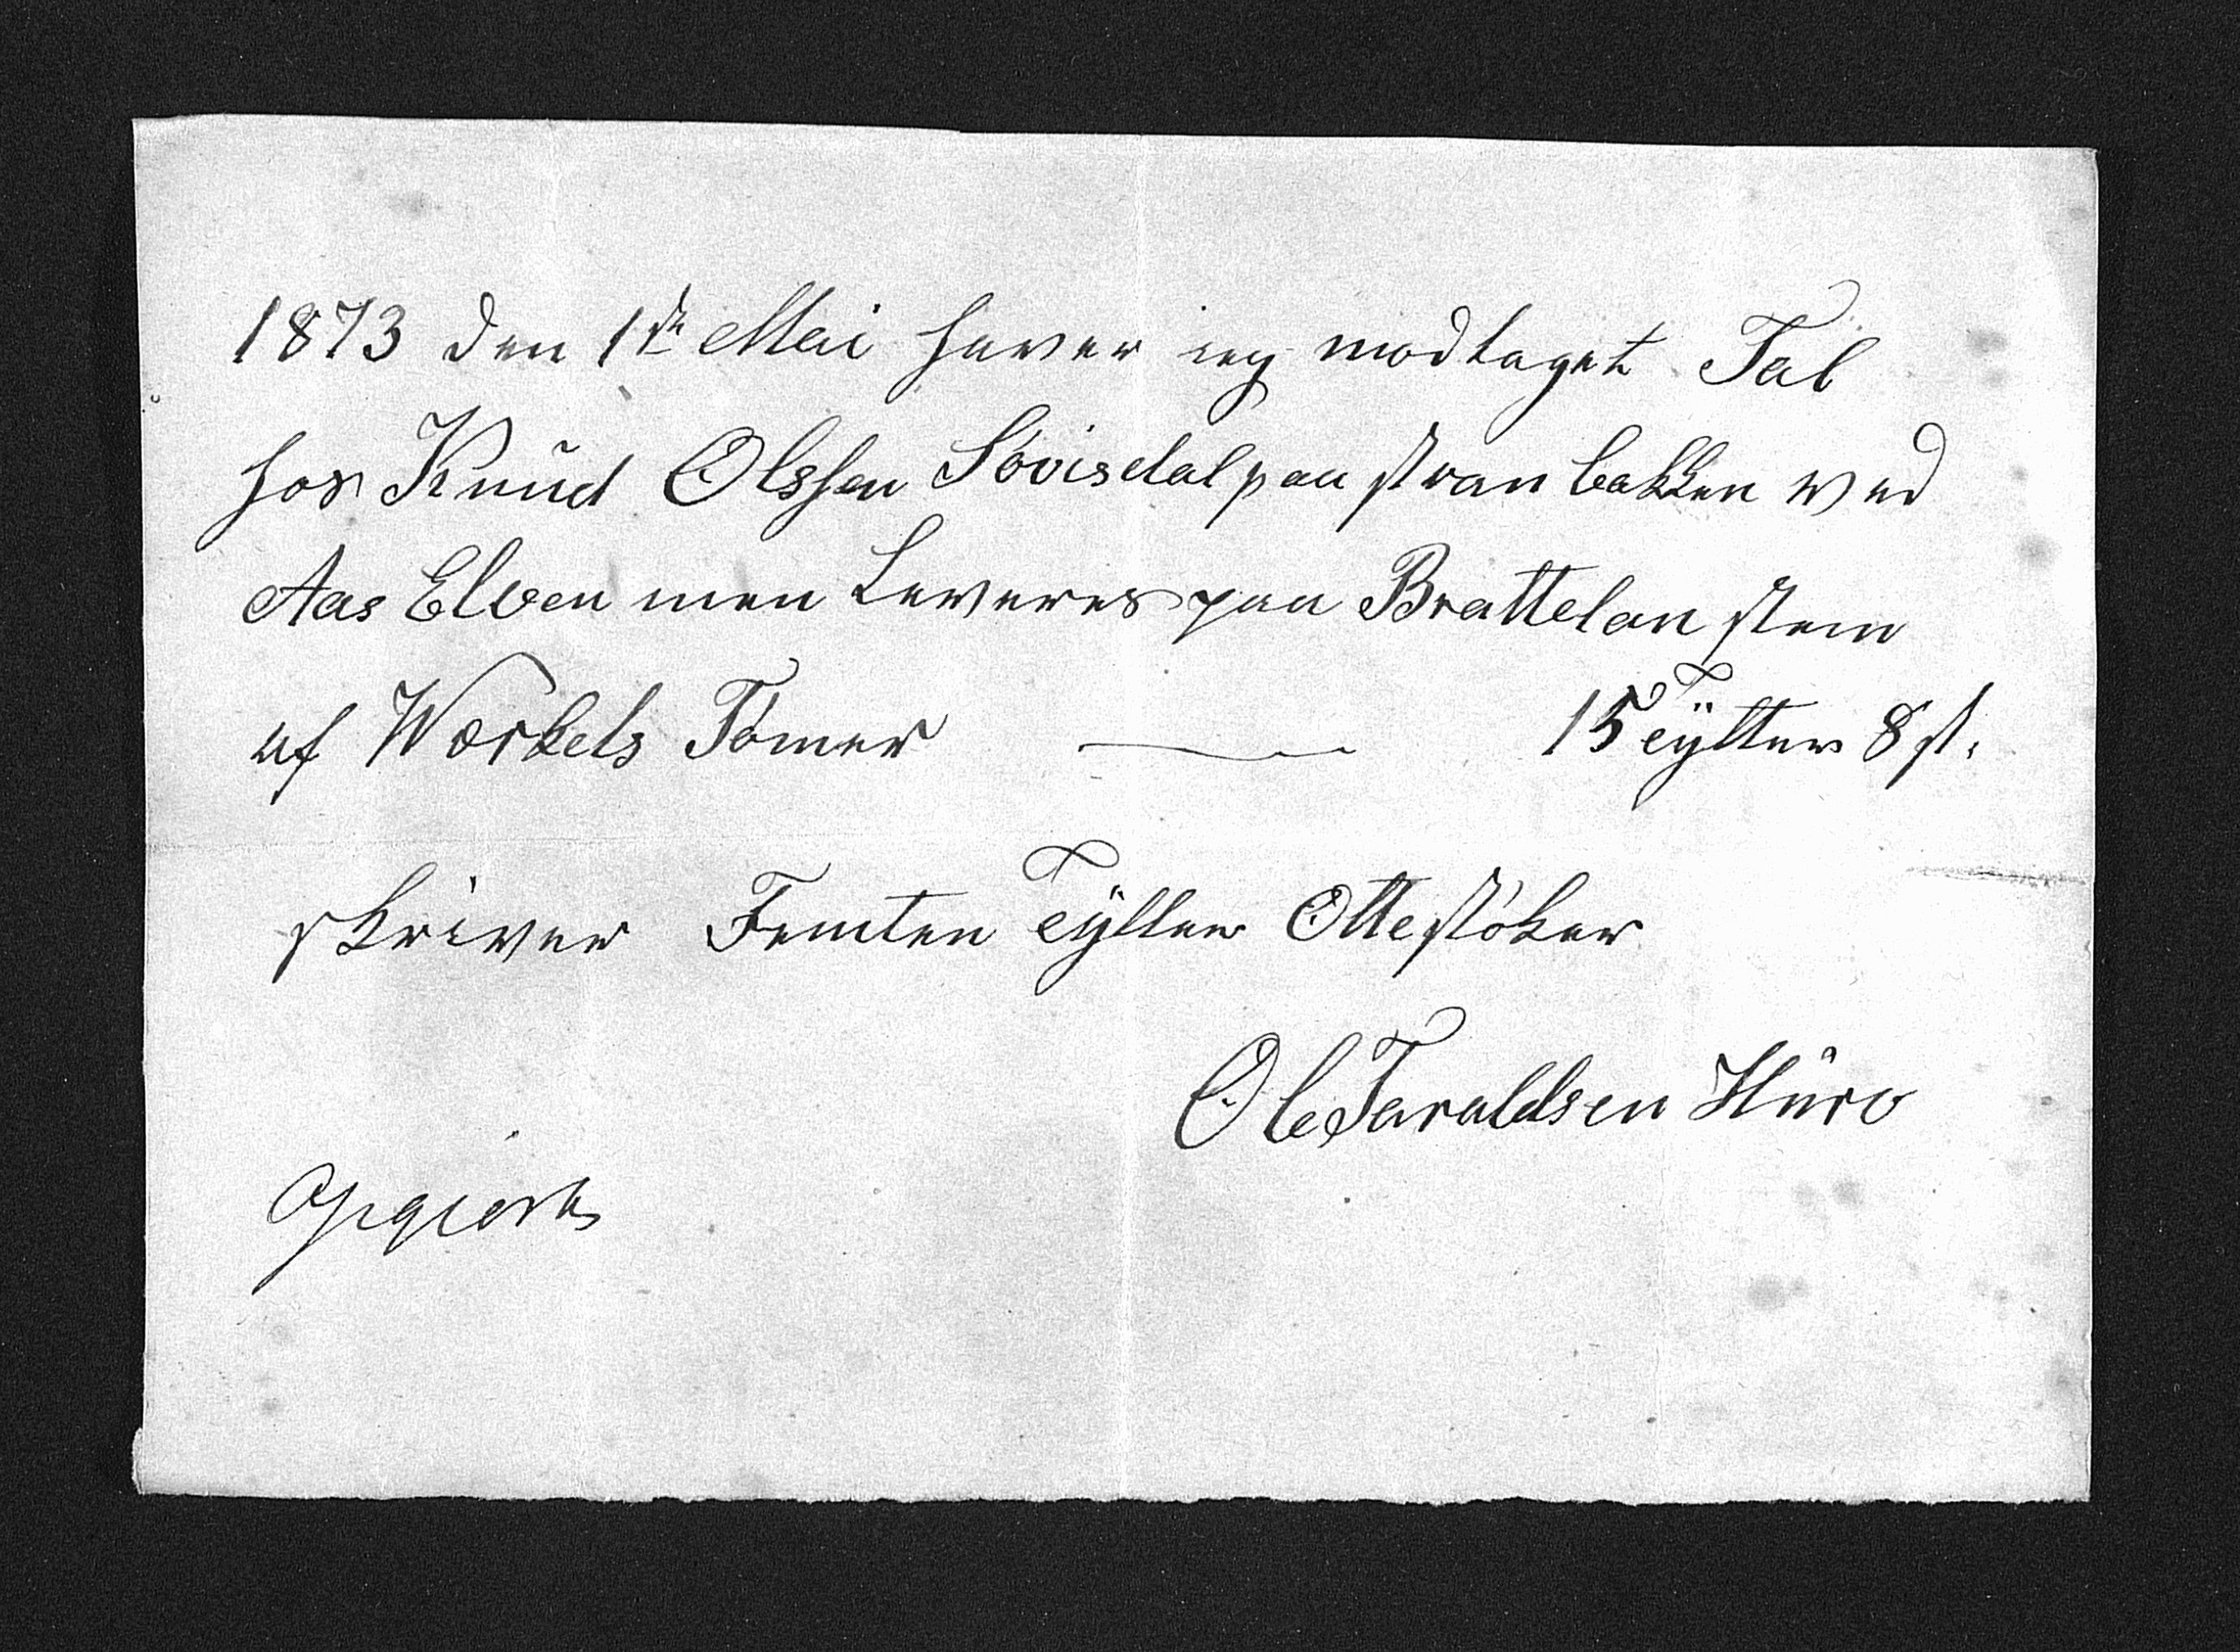 1873 den 1de Mai haver ieg modtaget Tal
hos Knud Olssen Sövisdal paa stranbakken wed
Aas Elven men Leveres paa Brattelan stem
af Workels Tömer — 15 Tÿlter 8 st.
skriver Femten Tÿlter Otte stöker
Ole Taraldsen Huro
Opgiort